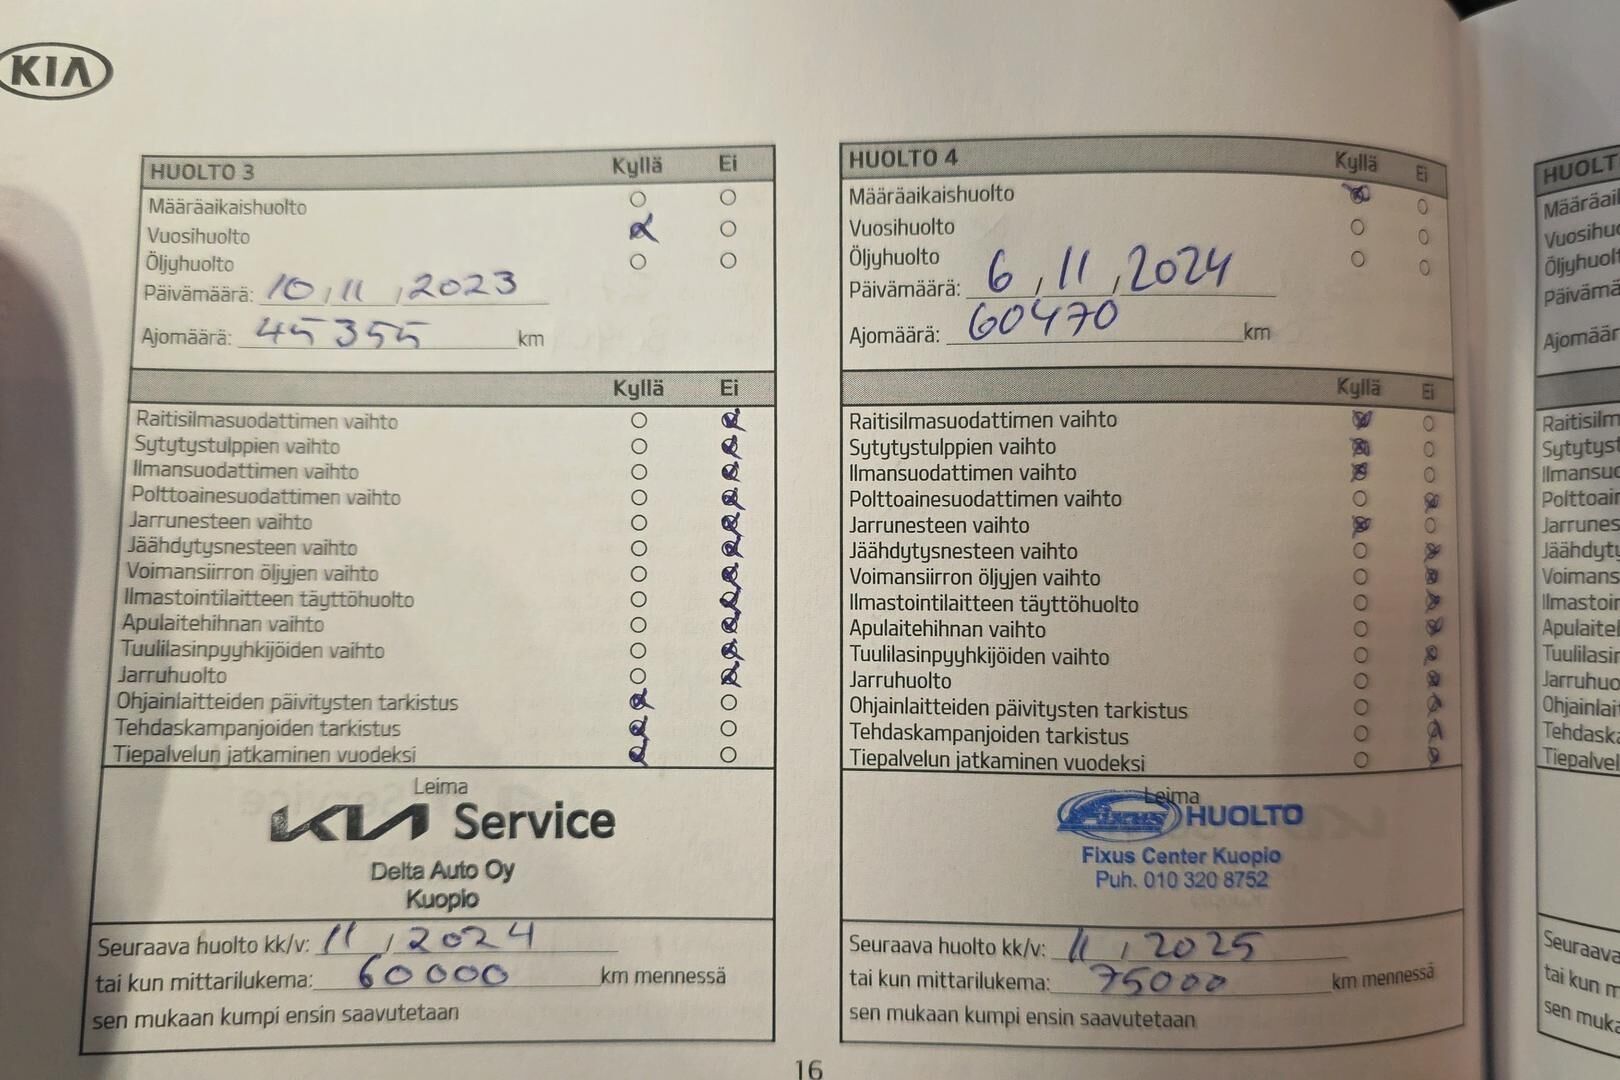 KIA
HUOLTO 3 Kyllä Ei
Määräaikaishuolto
Vuosihuolto
Öljyhuolto
Päivämäärä: 10, 11, 2023
Ajomäärä: 45355 km
Kyllä Ei
Raitisilmasuodattimen vaihto
Sytytystulppien vaihto
Ilmansuodattimen vaihto
Polttoainesuodattimen vaihto
Jarrunesteen vaihto
Jäähdytysnesteen vaihto
Voimansiirron öljyjen vaihto
Ilmastointilaitteen täyttöhuolto
Apulaitehihnan vaihto
Tuulilasinpyyhkijöiden vaihto
Jarruhuolto
Ohjainlaitteiden päivitysten tarkistus
Tehdaskampanjoiden tarkistus
Tiepalvelun jatkaminen vuodeksi
Leima
KIA Service
Delta Auto Oy
Kuopio
Seuraava huolto kk/v: 11 / 2024
tai kun mittarilukema: 60000 km mennessä
sen mukaan kumpi ensin saavutetaan
HUOLTO 4 Kyllä Ei
Määräaikaishuolto
Vuosihuolto
Öljyhuolto
Päivämäärä: 6, 11, 2024
Ajomäärä: 60470 km
Kyllä Ei
Raitisilmasuodattimen vaihto
Sytytystulppien vaihto
Ilmansuodattimen vaihto
Polttoainesuodattimen vaihto
Jarrunesteen vaihto
Jäähdytysnesteen vaihto
Voimansiirron öljyjen vaihto
Ilmastointilaitteen täyttöhuolto
Apulaitehihnan vaihto
Tuulilasinpyyhkijöiden vaihto
Jarruhuolto
Ohjainlaitteiden päivitysten tarkistus
Tehdaskampanjoiden tarkistus
Tiepalvelun jatkaminen vuodeksi
Leima
Fixus HUOLTO
Fixus Center Kuopio
Puh. 010 320 8752
Seuraava huolto kk/v: 11 / 2025
tai kun mittarilukema: 75000 km mennessä
sen mukaan kumpi ensin saavutetaan
16
Seuraava
tai kun